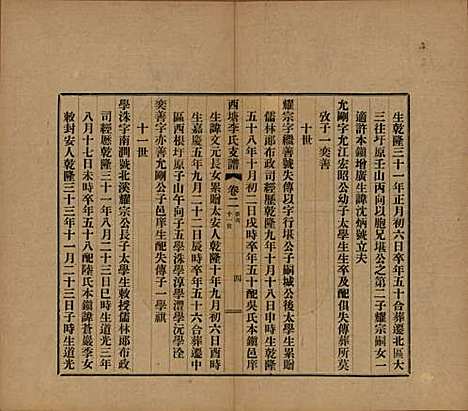 生乾隆三十一年正月初六日卒年五十合葬遷北區大
三汪圩原壬山丙向以胞兄堪公之第二子耀宗嗣女一
適許本鎮增廣生諱沈炳號立夫
允剛字允江宏昭公幼子太學生生卒及配俱失傳葬所莫
攷子一奕善
十世
耀宗字纘善號失傳以字行堪公子嗣城公後太學生累贈
儒林郎布政司經歷乾隆十年十月十八日申時生乾隆
五十八年十月初二日戌時卒年五十配吳氏本鎮邑庠
西塘李氏支譜
卷二
四
生諱文元長女累贈太安人乾隆十年九月初六日酉時
生嘉慶五年九月二十二日辰時卒年五十六合葬遷中
區西根圩原子山午向子五學洙學淳學澧學沅學淦
奕善字赤善允剛公子邑庠生配失傳子一學祺
十一世
學洙字南澗號北溪耀宗公長子太學生敕授儒林郎布政
司經歷乾隆三十年九月初八日未時生道光三年
八月十七日未時卒年五十八配陸氏本鎮諱蒼巖季女
敕封安人乾隆三十三年十一月二十三日子時生道光